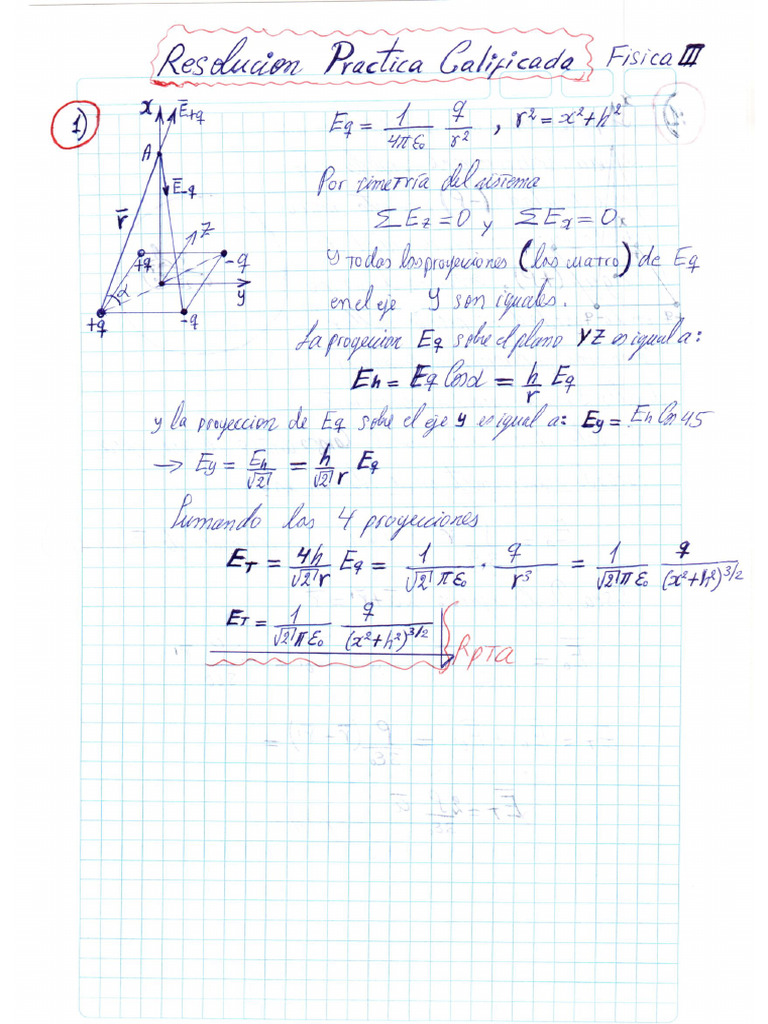 Resolucion Practica Calificada Fisica III
1)
x E̅+q
A
E̅-q
r̅
z
+q
-q
α
y
+q
-q
Eq = 1/4πε₀ q/r² , r² = x² + h²
Por simetría del sistema
ΣEz = 0 y ΣEx = 0
y todas las proyecciones (las cuatro) de Eq
en el eje Y son iguales.
La proyeccion Eq sobre el plano YZ es igual a:
Eh = Eq Cosα = h/r Eq
y la proyeccion de Eq sobre el eje y es igual a: Ey = Eh Cos 45
→ Ey = Eh/√2 = h/√2 r Eq
Sumando las 4 proyecciones
ET = 4h/√2 r Eq = 1/√2 πε₀ · q/r³ = 1/√2 πε₀ q/(x²+h²)^3/2
ET = 1/√2 πε₀ q/(x²+h²)^3/2
Rpta